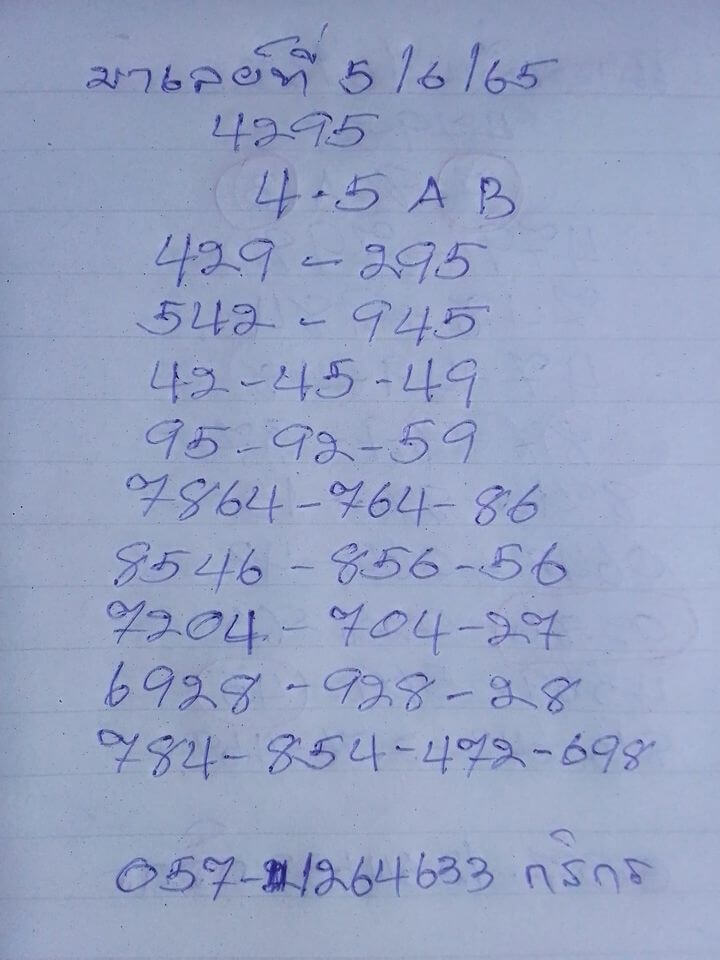 มาเลย์ที่ 5/6/65
4295
4.5 A B
429 - 295
542 - 945
42 - 45 - 49
95 - 92 - 59
7864 - 764 - 86
8546 - 856 - 56
7204 - 704 - 27
6928 - 928 - 28
784 - 854 - 472 - 698